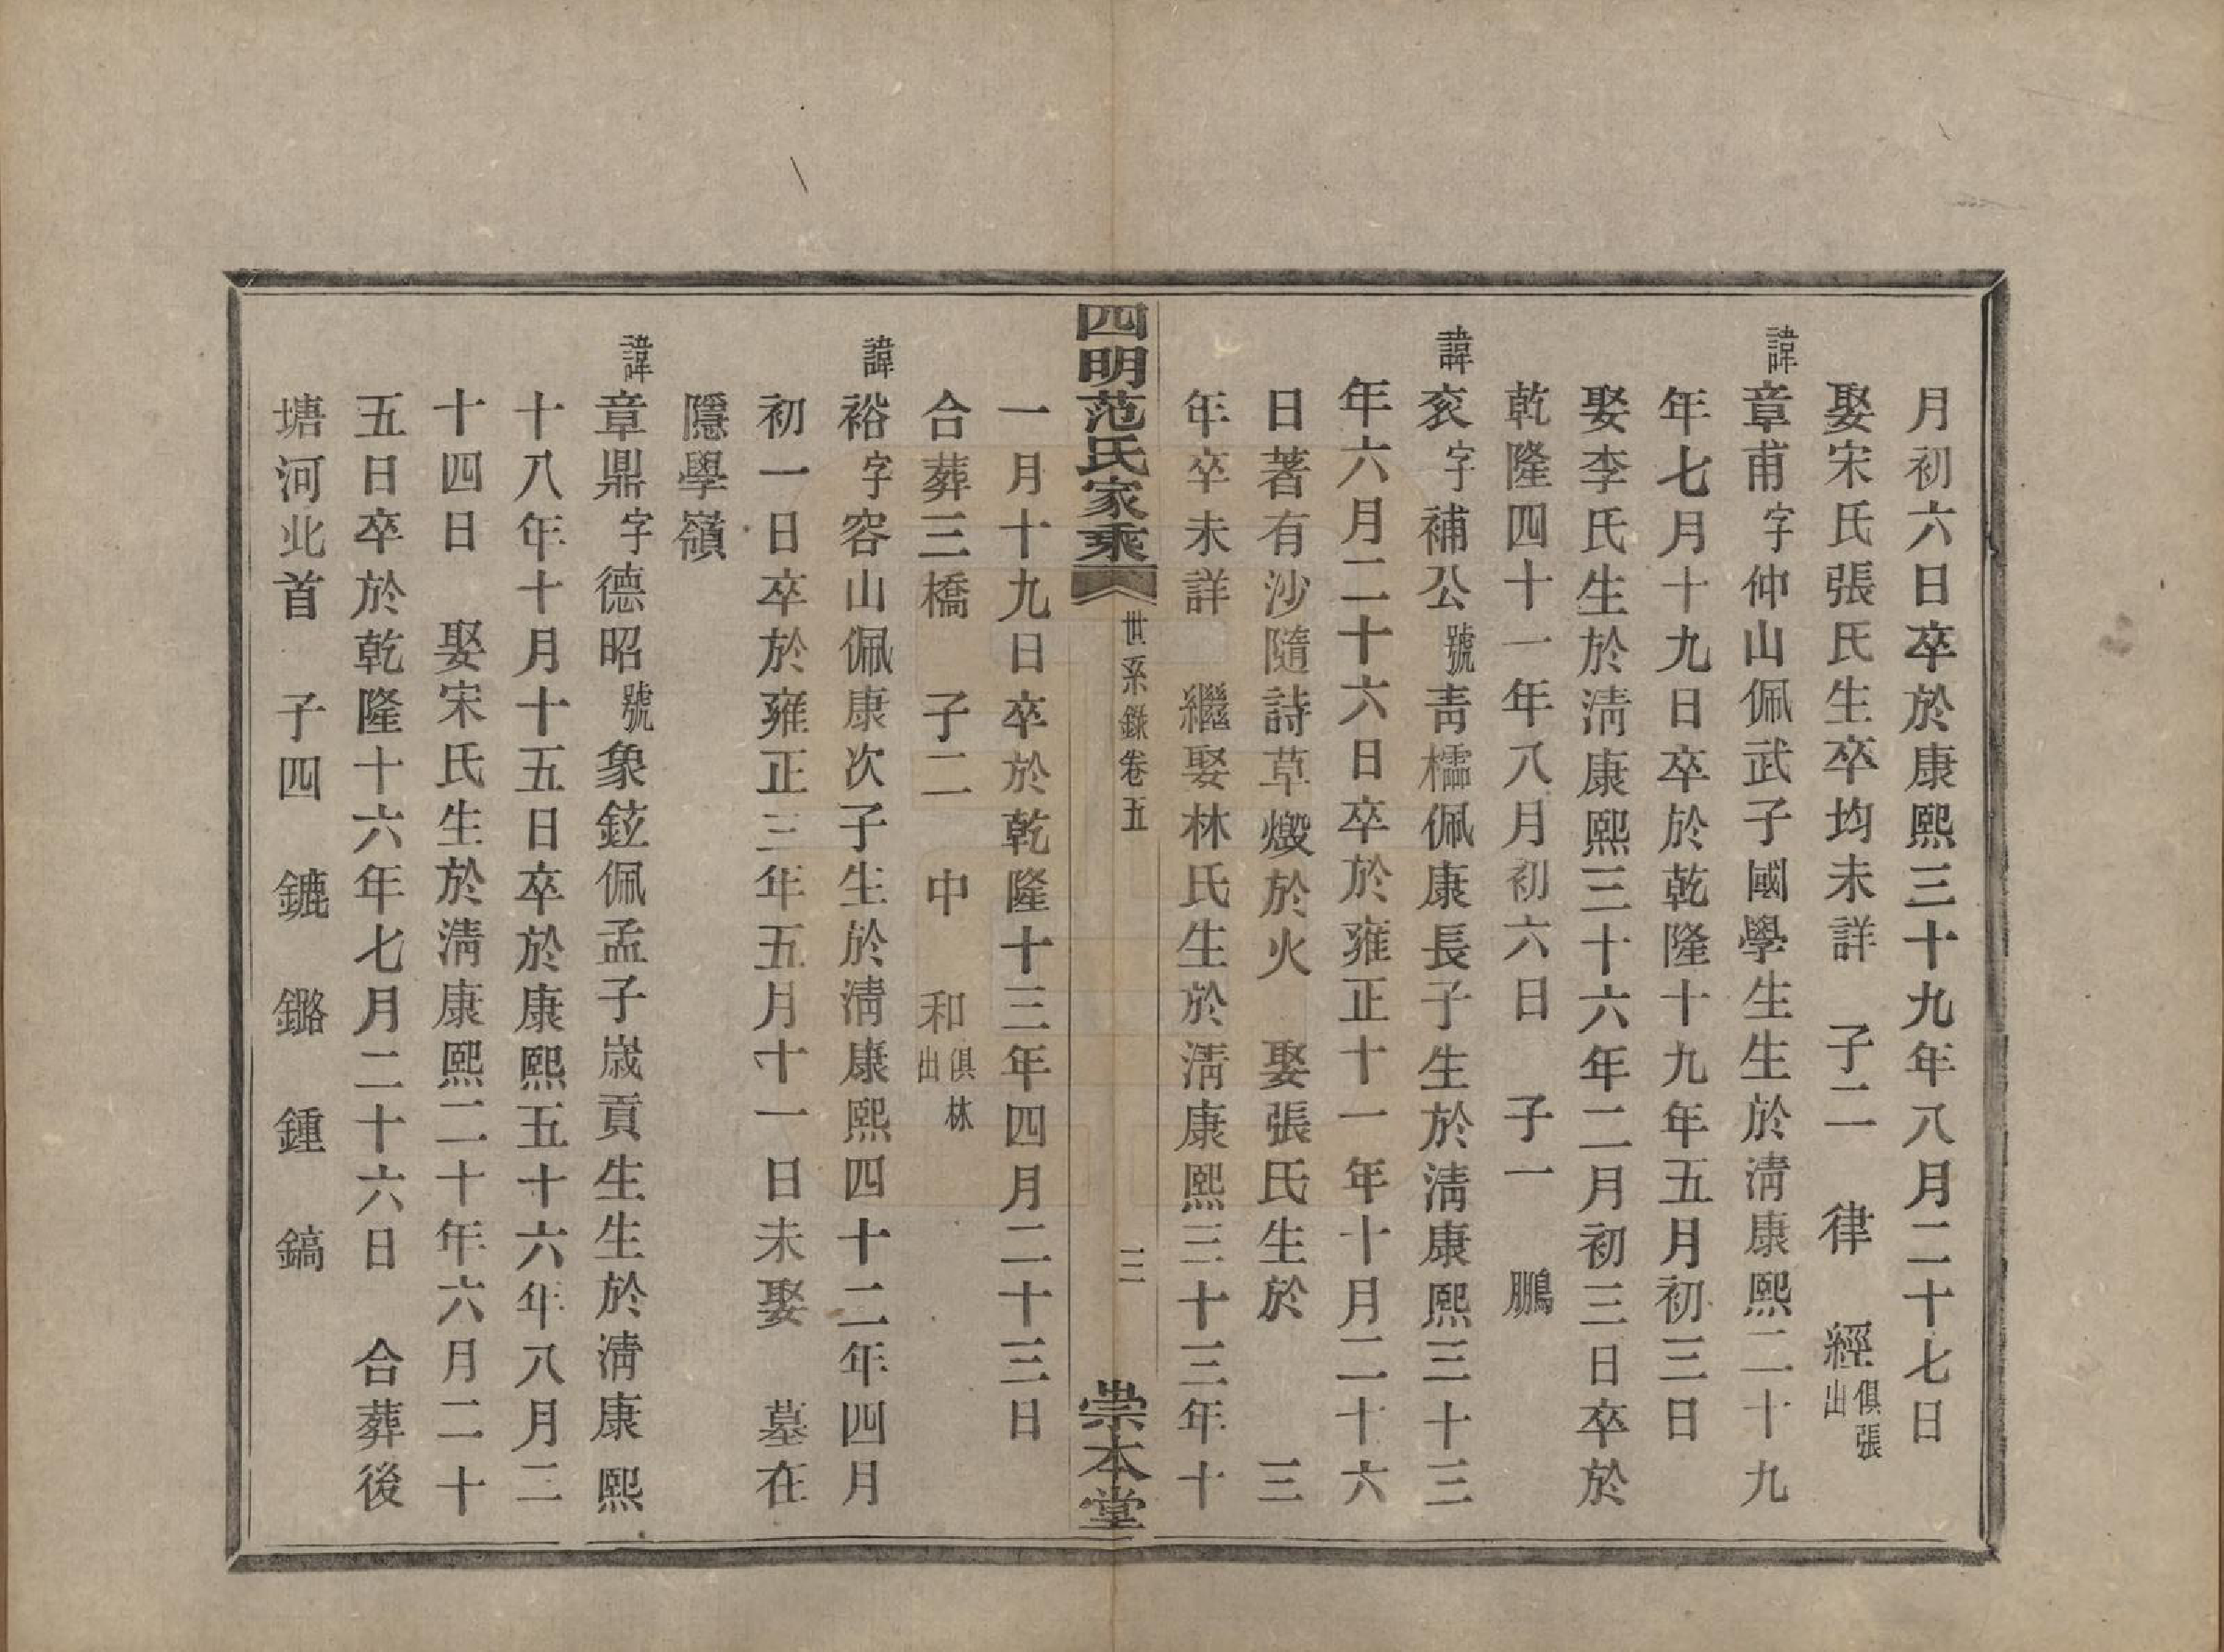 月初六日卒於康熙三十九年八月二十七日
娶宋氏張氏生卒均未詳　子二　律　經俱張出
諱章甫字仲山佩武子國學生生於淸康熙二十九
年七月十九日卒於乾隆十九年五月初三日
娶李氏生於淸康熙三十六年二月初三日卒於
乾隆四十一年八月初六日　子一　鵬
諱衮字補公號靑櫺佩康長子生於淸康熙三十三
年六月二十六日卒於雍正十一年十月二十六
日著有沙隨詩草燬於火　娶張氏生於　三
年卒未詳　繼娶林氏生於淸康熙三十三年十
四明范氏家乘　世系錄卷五　三　崇本堂
一月十九日卒於乾隆十三年四月二十三日
合葬三橋　子二　中　和俱林出
諱裕字容山佩康次子生於淸康熙四十二年四月
初一日卒於雍正三年五月十一日未娶　墓在
隱學嶺
諱章鼎字德昭號象鉉佩孟子歲貢生生於淸康熙
十八年十月十五日卒於康熙五十六年八月二
十四日　娶宋氏生於淸康熙二十年六月二十
五日卒於乾隆十六年七月二十六日　合葬後
塘河北首　子四　鏕　鏴　鍾　鎬